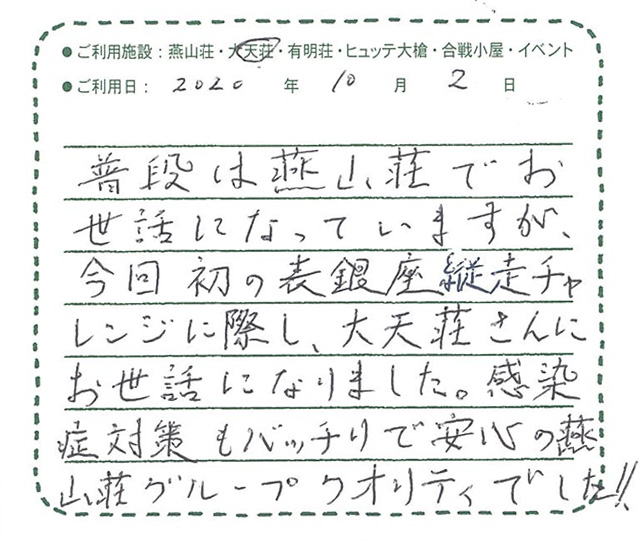 ●ご利用施設：燕山荘・大天荘・有明荘・ヒュッテ大槍・合戦小屋・イベント
●ご利用日： 2020 年 10 月 2 日
普段は燕山荘でお
世話になっていますが、
今回初の表銀座縦走チャ
レンジに際し、大天荘さんに
お世話になりました。感染
症対策もバッチリで安心の燕
山荘グループクオリティでした!!